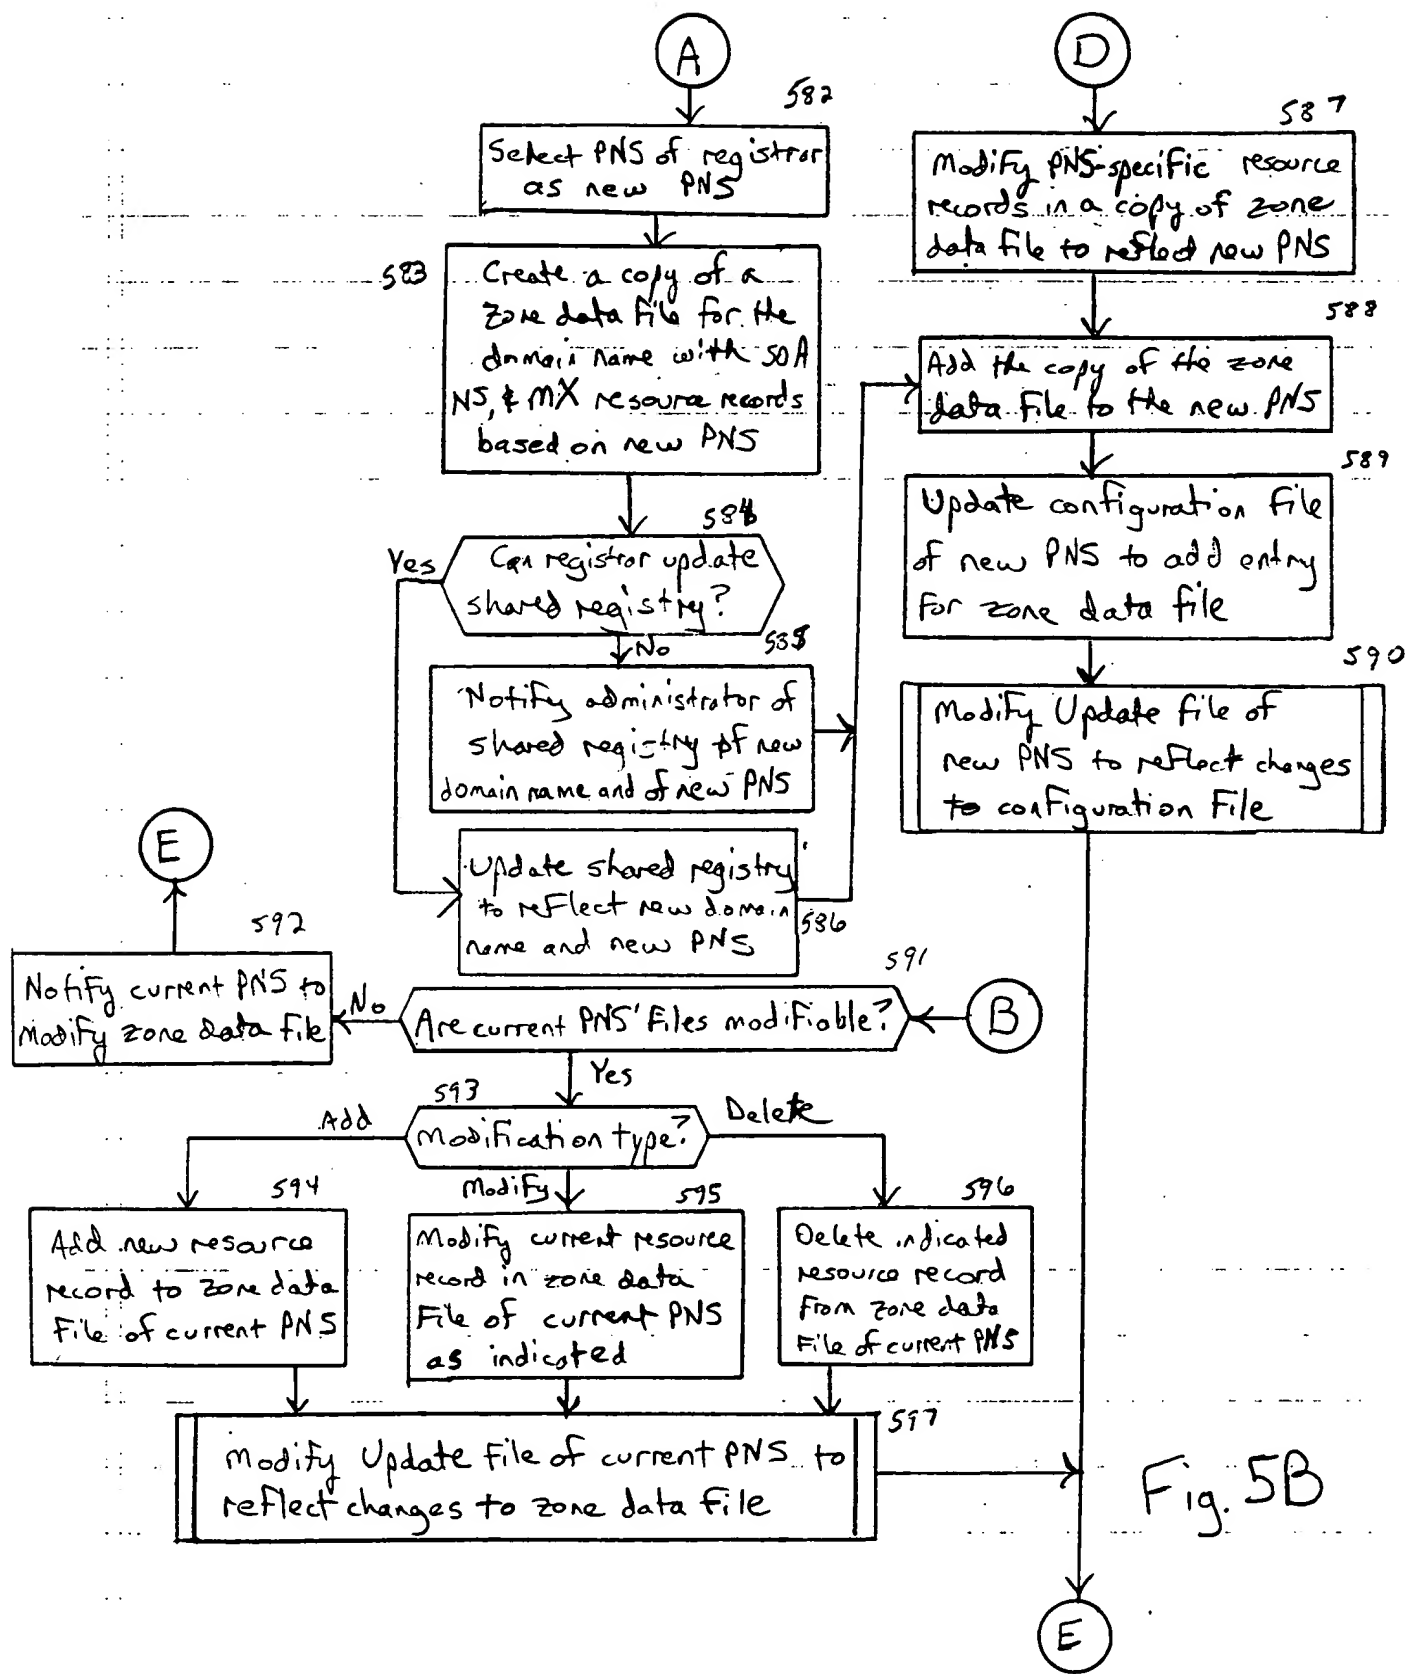 A
582
Select PNS of registrar
as new PNS
583
Create a copy of a
zone data file for the
domain name with SOA
NS, & MX resource records
based on new PNS
584
Can registrar update
shared registry?
Yes
No
585
Notify administrator of
shared registry of new
domain name and of new PNS
Update shared registry
to reflect new domain
name and new PNS
586
D
587
Modify PNS-specific resource
records in a copy of zone
data file to reflect new PNS
588
Add the copy of the zone
data file to the new PNS
589
Update configuration file
of new PNS to add entry
for zone data file
590
Modify Update file of
new PNS to reflect changes
to configuration file
E
592
Notify current PNS to
modify zone data file
No
591
Are current PNS' files modifiable?
B
Yes
593
Modification type?
Add
Modify
Delete
594
Add new resource
record to zone data
file of current PNS
595
Modify current resource
record in zone data
file of current PNS
as indicated
596
Delete indicated
resource record
from zone data
file of current PNS
597
Modify Update file of current PNS to
reflect changes to zone data file
Fig. 5B
E